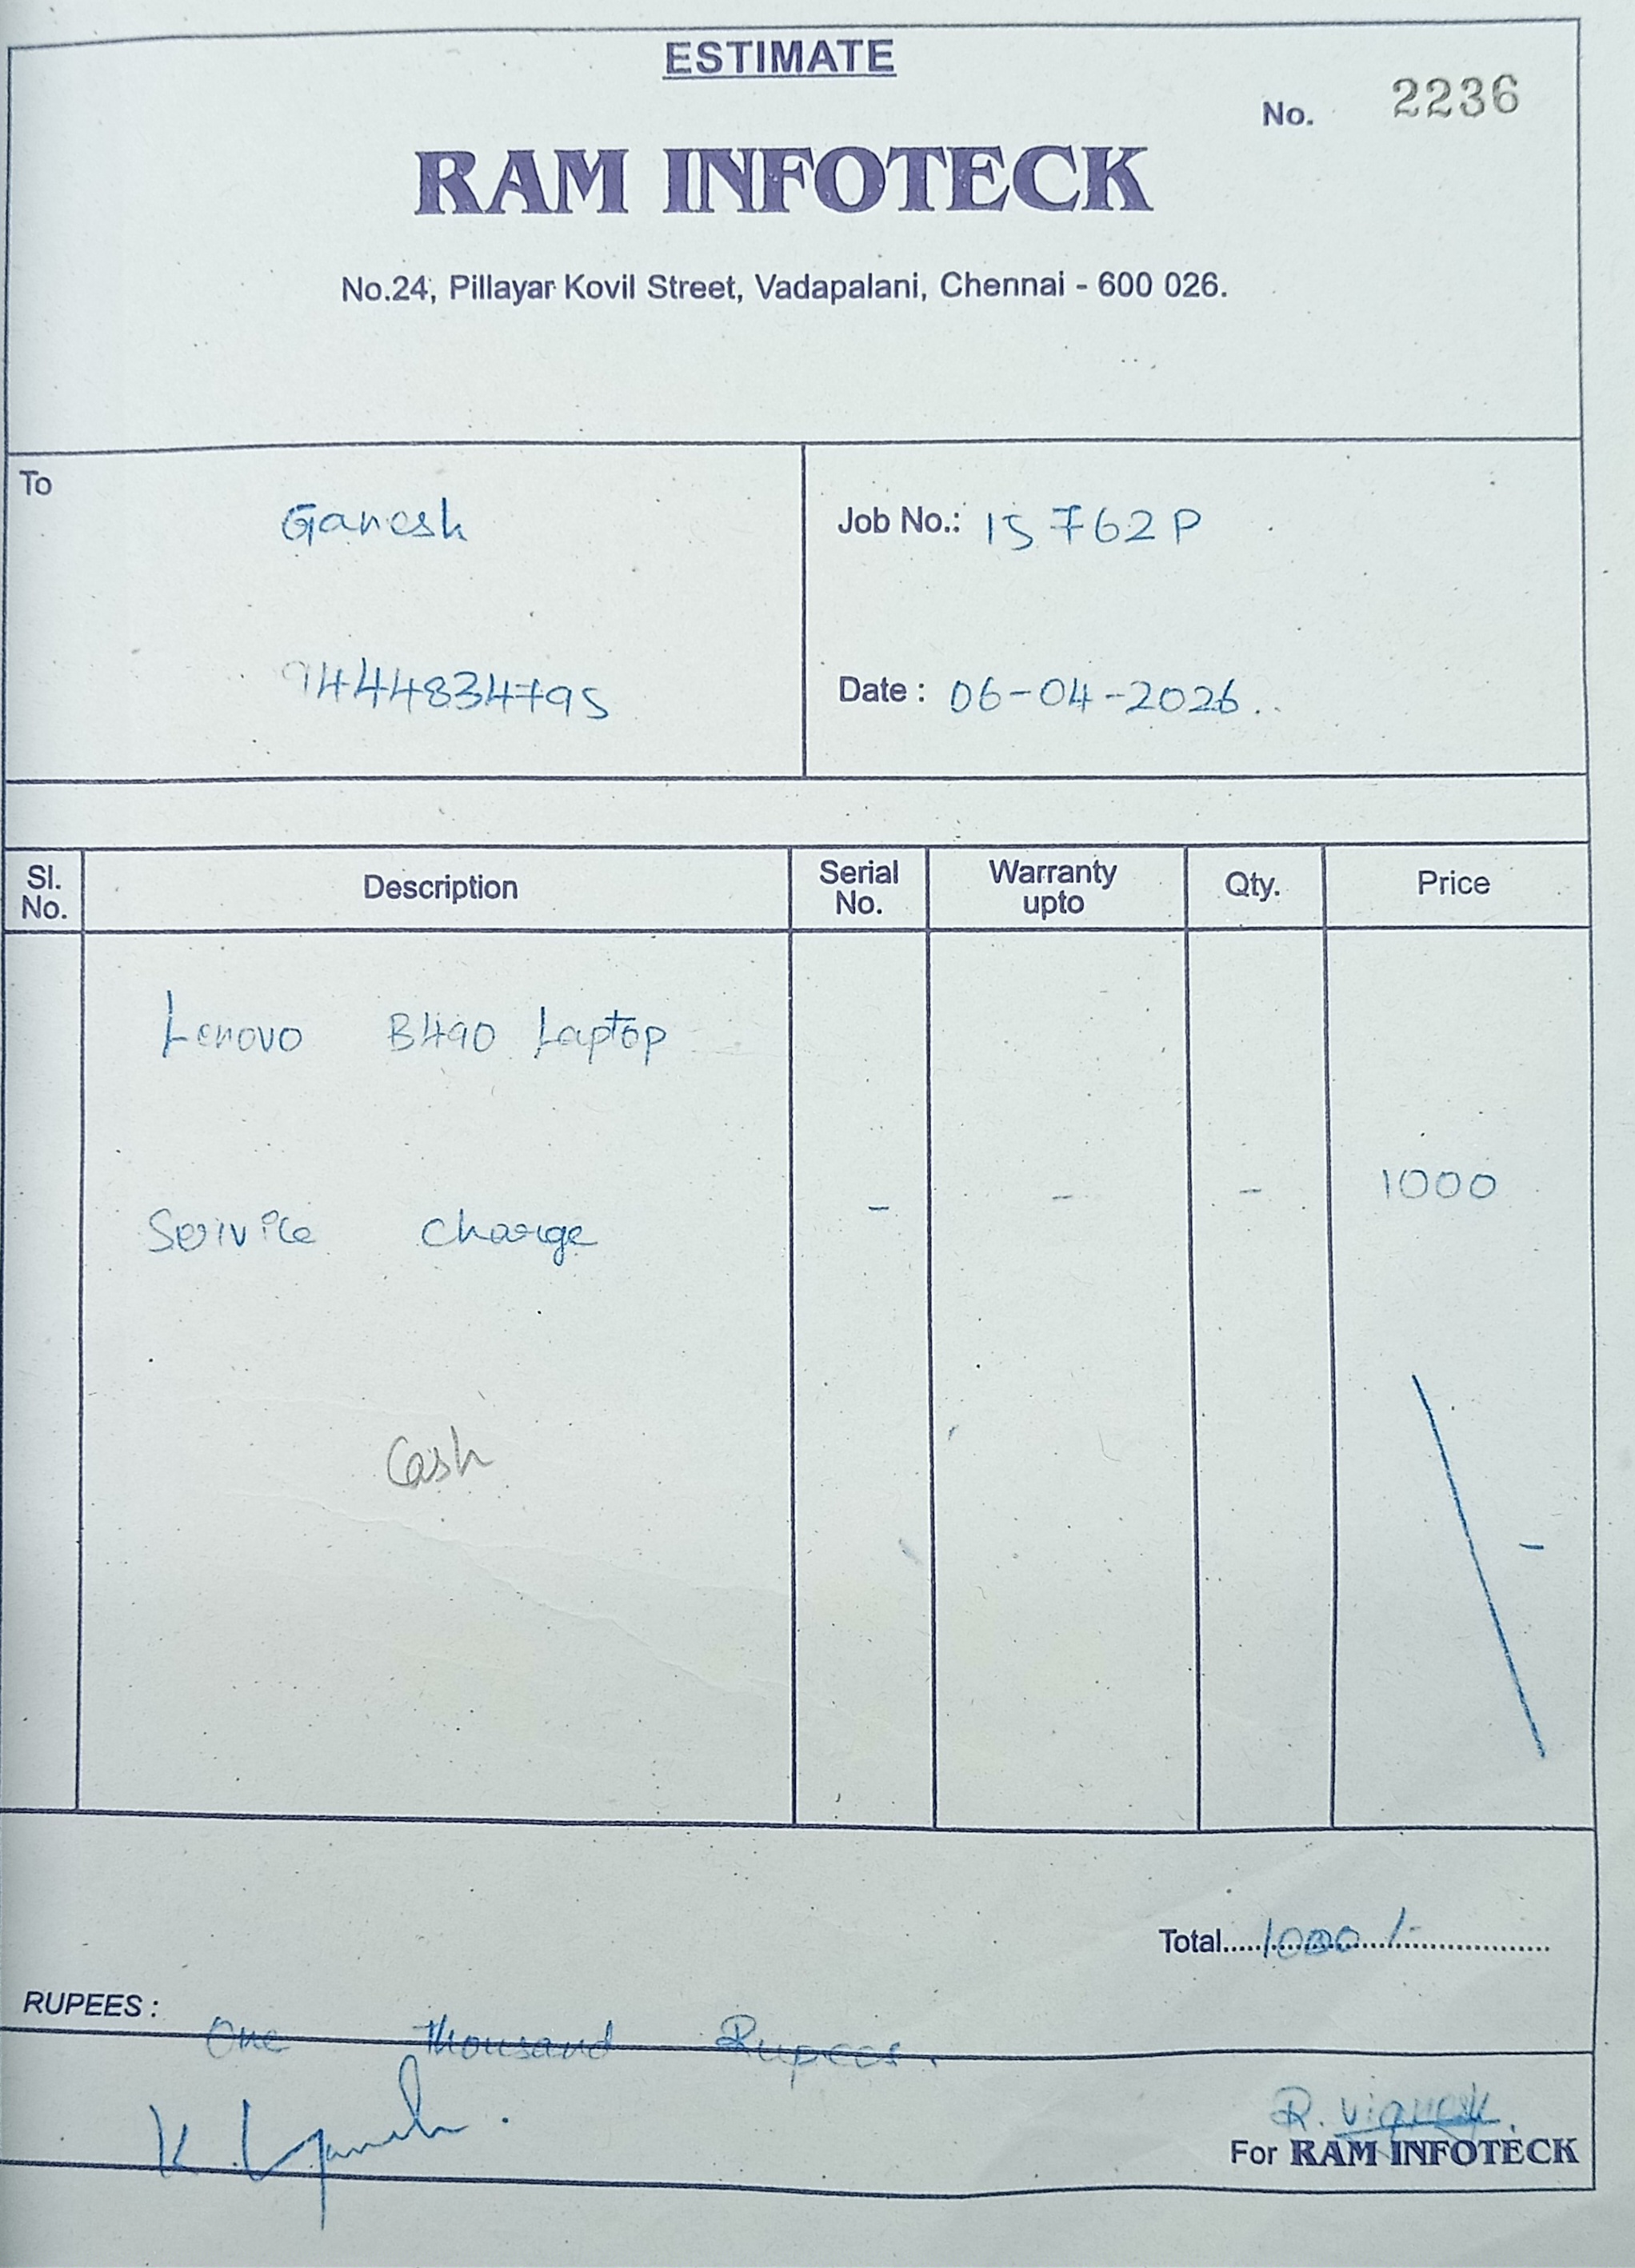 ESTIMATE
No. 2236
RAM INFOTECK
No.24, Pillayar Kovil Street, Vadapalani, Chennai - 600 026.
To
Ganesh
9444834795
Job No.: 15762P
Date : 06-04-2026..
Sl. No. Description Serial No. Warranty upto Qty. Price
Lenovo B490 Laptop
Service charge - - - 1000
Cash
-
Total.....1000/-
RUPEES :
One thousand Rupees.
K. Ganesh.
R. Vignesh.
For RAM INFOTECK